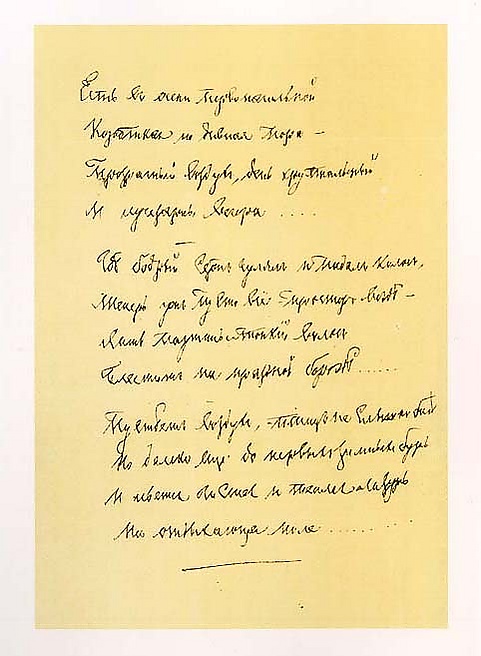 Есть въ осени первоначальной
Короткая но дивная пора –
Прозрачный воздухъ, день хрустальный
И лучезарны вечера ....
Гдѣ бодрый серпъ гулялъ и падалъ колосъ,
Теперь ужъ пусто все – просторъ вездѣ –
Лишь паутины тонкій волосъ
Блеститъ на праздной бороздѣ ......
Пустѣетъ воздухъ, птицъ не слышно болѣ
Но далеко еще до первыхъ зимнихъ бурь
И льется чистая и теплая лазурь
На отдыхающее поле ........